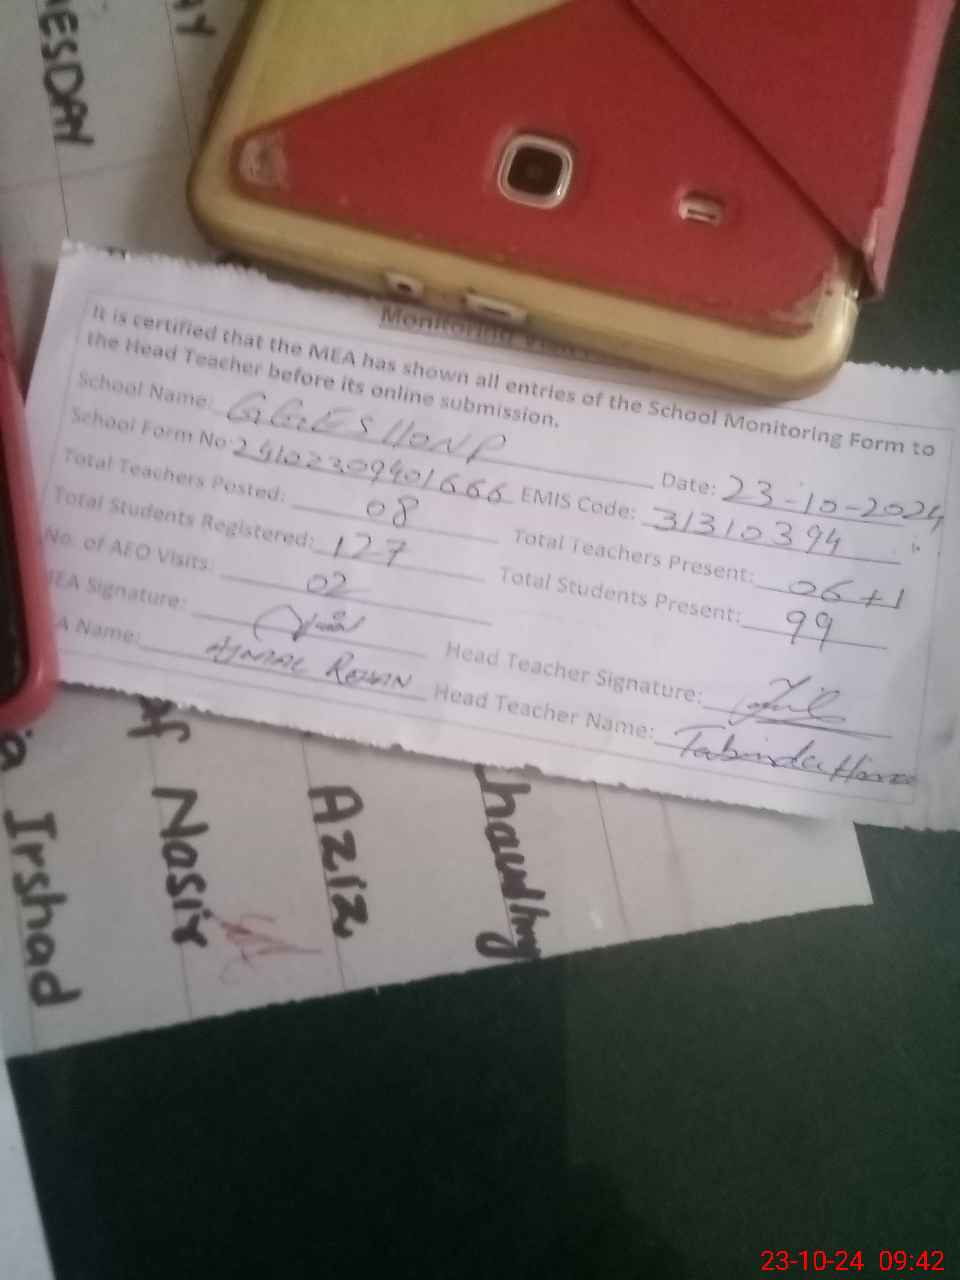 ESDAY
AY
Monitoring Visit
It is certified that the MEA has shown all entries of the School Monitoring Form to
the Head Teacher before its online submission.
School Name: GGES Date: 23-10-2024
School Form No: 24102309401666 EMIS Code: 31310394
Total Teachers Posted: 08 Total Teachers Present: 06+1
Total Students Registered: 127 Total Students Present: 99
No. of AEO Visits: 02
EA Signature: Head Teacher Signature:
A Name: AJMAL Head Teacher Name: Tabinda
Irshad
Nasir
Aziz
haudhry
23-10-24 09:42